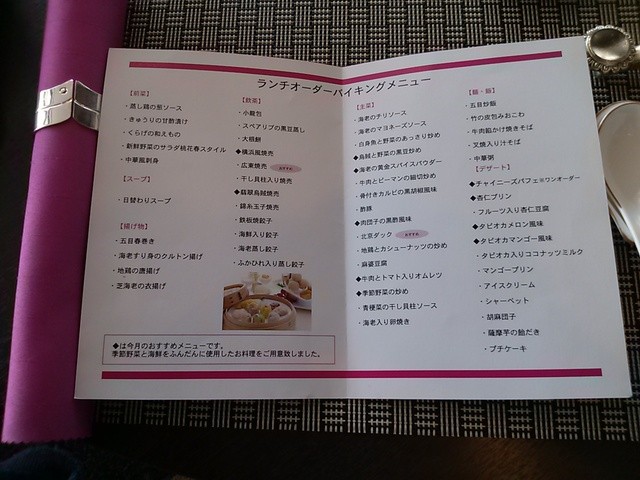 ランチオーダーバイキングメニュー
【前菜】
・蒸し鶏の葱ソース
・きゅうりの甘酢漬け
・くらげの和えもの
・新鮮野菜のサラダ桃花春スタイル
・中華風刺身
【スープ】
・日替わりスープ
【揚げ物】
・五目春巻き
・海老すり身のクルトン揚げ
・地鶏の唐揚げ
・芝海老の衣揚げ
【飲茶】
・小籠包
・スペアリブの黒豆蒸し
・大根餅
◆横浜風焼売
・広東焼売
・干し貝柱入り焼売
◆翡翠烏賊焼売
・錦糸玉子焼売
・鉄板焼餃子
・海鮮入り餃子
・海老蒸し餃子
・ふかひれ入り蒸し餃子
◆は今月のおすすめメニューです。
季節野菜と海鮮をふんだんに使用したお料理をご用意致しました。
【主菜】
・海老のチリソース
・海老のマヨネーズソース
・白身魚と野菜のあっさり炒め
◆烏賊と野菜の黒豆炒め
◆海老の黄金スパイスパウダー
・牛肉とピーマンの細切炒め
・骨付きカルビの黒胡椒風味
・酢豚
◆肉団子の黒酢風味
・北京ダック
・地鶏とカシューナッツの炒め
・麻婆豆腐
◆牛肉とトマト入りオムレツ
◆季節野菜の炒め
・青梗菜の干し貝柱ソース
・海老入り卵焼き
【麺・飯】
・五目炒飯
・竹の皮包みおこわ
・牛肉餡かけ焼きそば
・叉焼入り汁そば
・中華粥
【デザート】
◆チャイニーズパフェ※ワンオーダー
◆杏仁プリン
・フルーツ入り杏仁豆腐
◆タピオカメロン風味
◆タピオカマンゴー風味
・タピオカ入りココナッツミルク
・マンゴープリン
・アイスクリーム
・シャーベット
・胡麻団子
・薩摩芋の飴だき
・プチケーキ